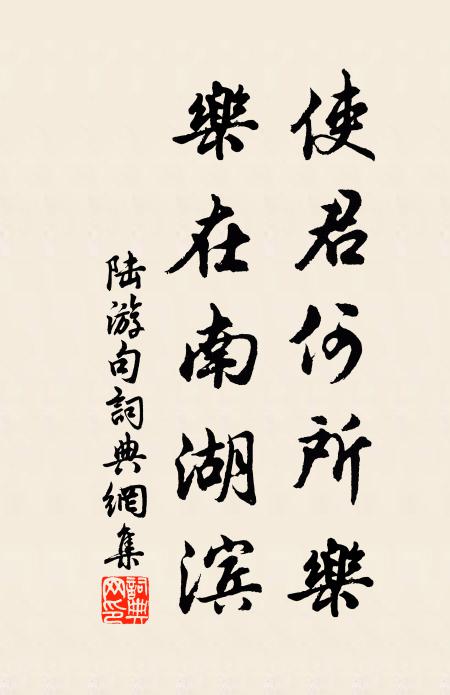 使君何所樂
樂在南湖滨
陆游句詞典網集
詞典网印